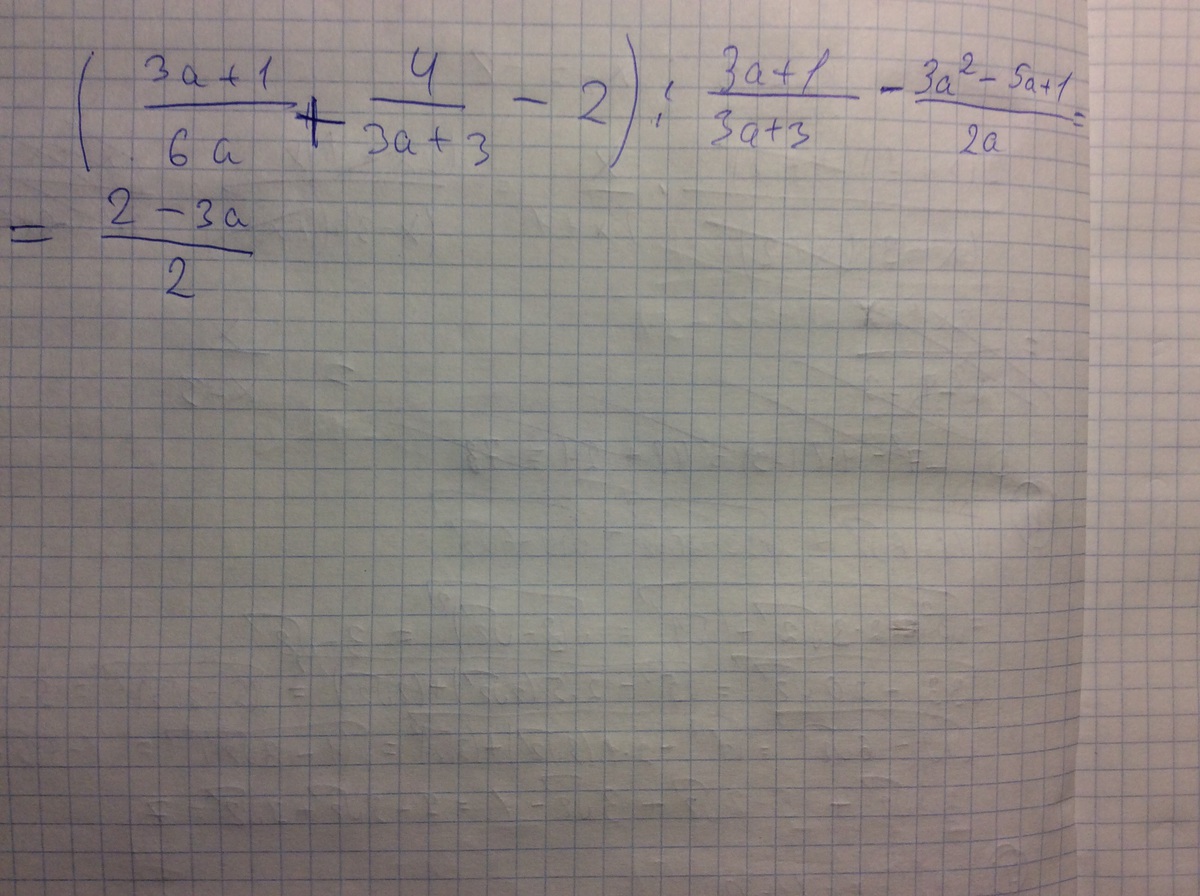 ( (3a+1)/(6a) + 4/(3a+3) - 2 ) : (3a+1)/(3a+3) - (3a² - 5a+1)/(2a) =
= (2 - 3a)/2